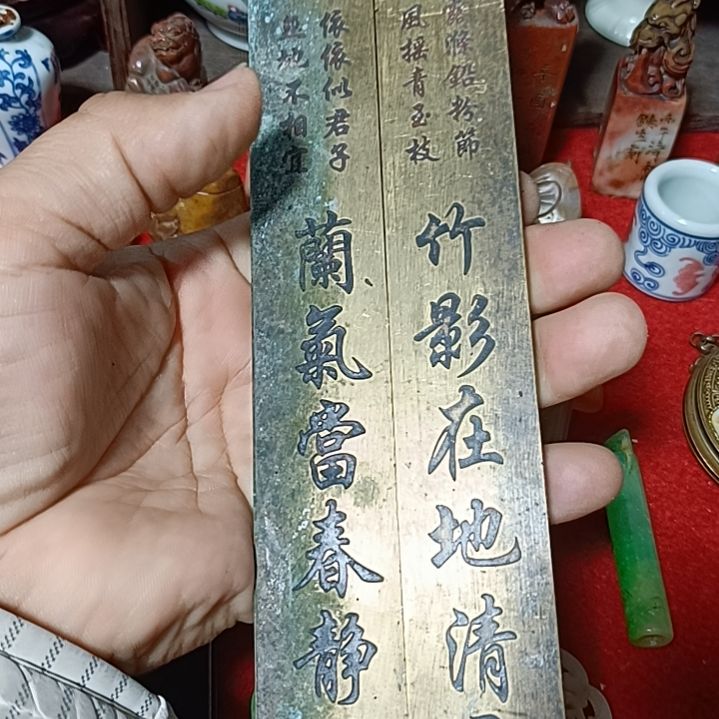 露滌鉛粉節
風搖青玉枝
竹影在地清
依依似君子
無地不相宜
蘭氣當春静